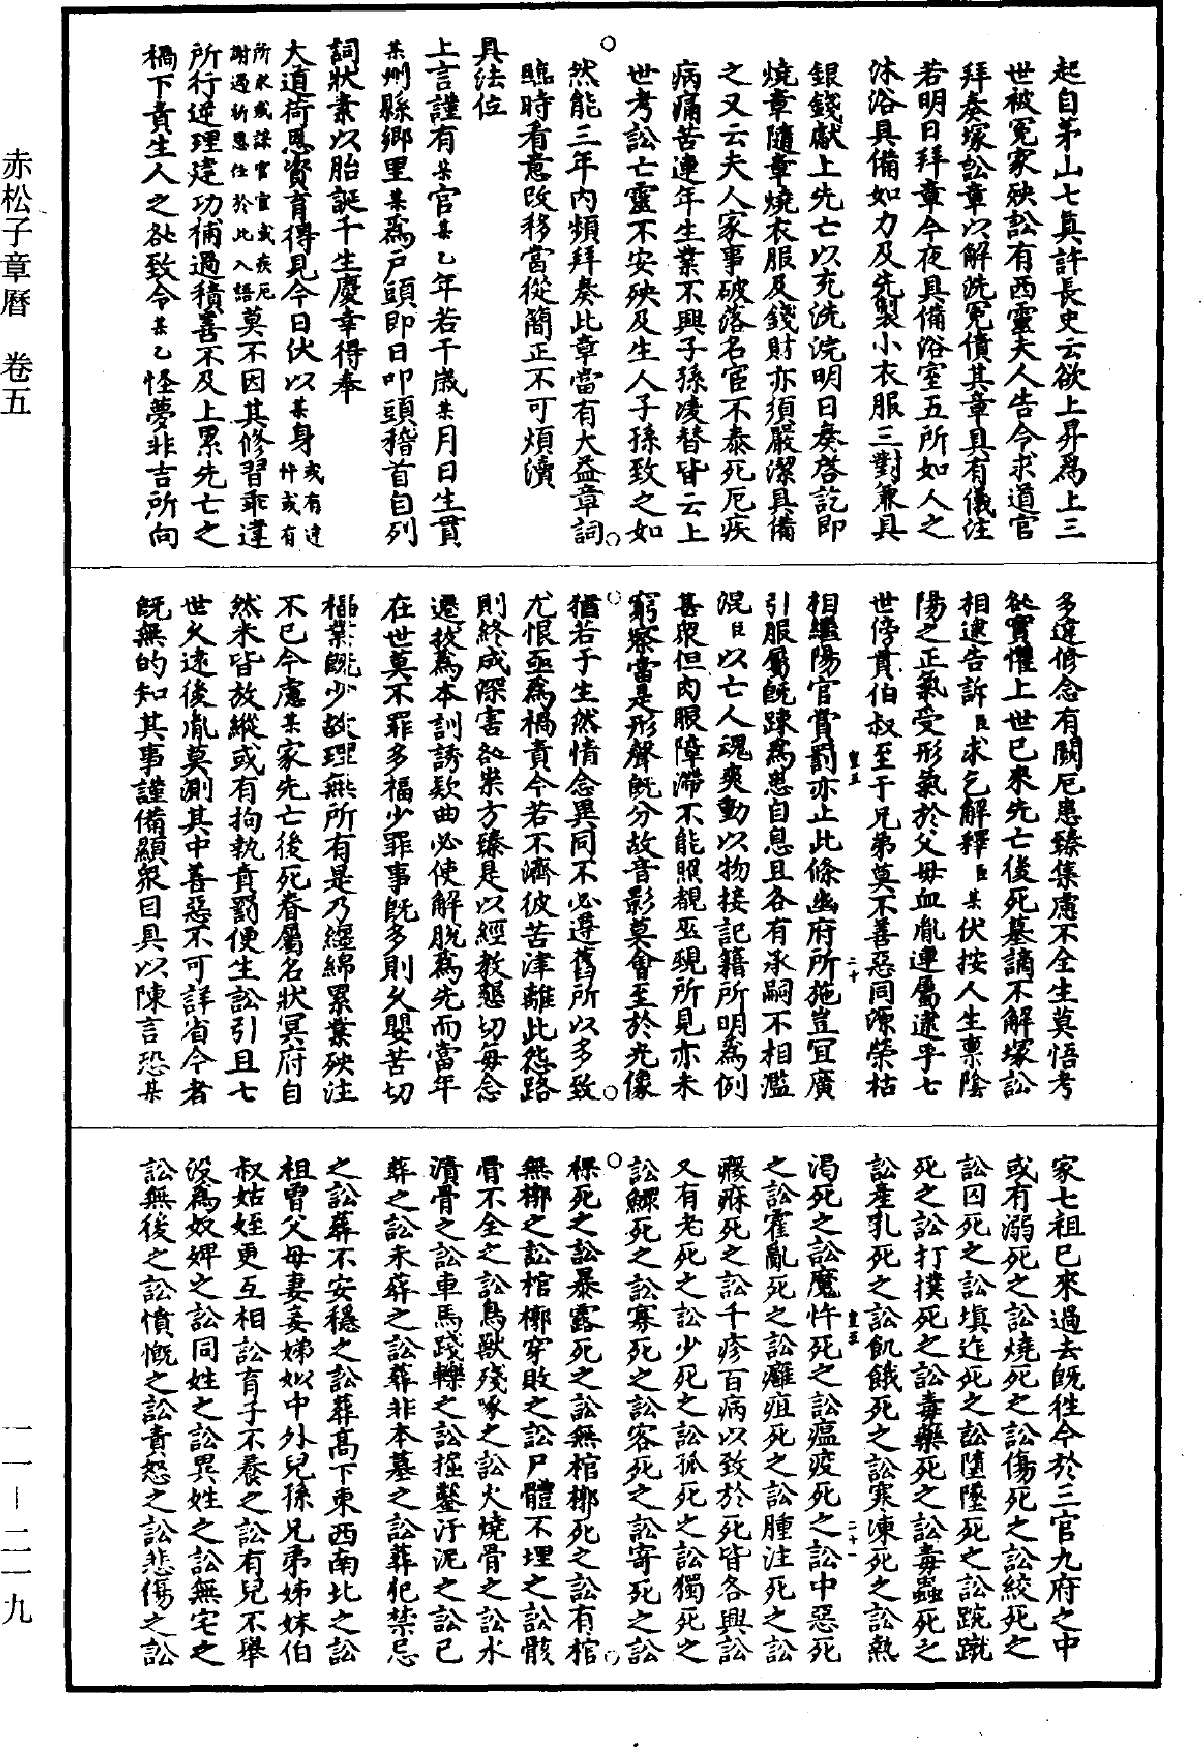 赤松子章曆 卷五
一一—二一九
起自茅山七真許長史云欲上昇爲上三
世被冤家殃訟有西靈夫人告令求道官
拜奏塚訟章以解洗冤債其章具有儀注
若明日拜章今夜具備浴室五所如人之
沐浴具備如力及先製小衣服三對兼具
銀錢獻上先亡以充洗浣明日奏啓訖即
燒章隨章燒衣服及錢財亦須嚴潔具備
之又云夫人家事破落名宦不泰死厄疾
病痛苦連年生業不興子孫凌替皆云上
世考訟亡靈不安殃及生人子孫致之如
然能三年内頻拜奏此章當有大益章詞
臨時看意改移當從簡正不可煩瀆
具法位
上言謹有某官某乙年若干歲某月日生貫
某州縣鄉里某爲戸頭即日叩頭稽首自列
詞狀素以胎誕千生慶幸得奉
大道荷恩資育得見今日伏以某身或有違忤或有
所求或謀官宦或疾厄謝過祈恩任於此入語莫不因其修習乖違
所行逆理建功補過積善不及上累先亡之
禍下責生人之咎致令某乙怪夢非吉所向
多違修念有闕厄患臻集慮不全生莫悟考
咎實懼上世已來先亡後死墓謫不解塚訟
相逮告訴臣求乞解釋臣某伏按人生禀陰
陽之正氣受形氣於父母血胤連屬逮乎七
世傍貫伯叔至于兄弟莫不善惡同源榮枯
相繼陽官賞罰亦止此條幽府所施豈宜廣
引服屬既踈爲患自息且各有承嗣不相濫
混臣以亡人魂爽動以物接記籍所明爲例
甚衆但肉眼障滯不能照覩巫覡所見亦未
窮察當是形聲既分故音影莫會至於光像
猶若于生然情念異同不必遵舊所以多致
尤恨亟爲禍責今若不濟彼苦津離此怨路
則終成深害咎祟方臻是以經教懇切每念
遷拔爲本訓誘款曲必使解脱爲先而當年
在世莫不罪多福少罪事既多則久嬰苦切
福業既少故理無所有是乃纏綿累業殃注
不已今慮某家先亡後死眷屬名狀冥府自
然未皆放縱或有拘執責罰便生訟引且七
世久遠後胤莫測其中善惡不可詳省今者
既無的知其事謹備顯衆目具以陳言恐某
家七祖已來過去既徃今於三官九府之中
或有溺死之訟燒死之訟傷死之訟絞死之
訟囚死之訟填迮死之訟墮墜死之訟踠蹴
死之訟打撲死之訟毒藥死之訟毒蟲死之
訟産乳死之訟飢餓死之訟寒凍死之訟熱
渴死之訟魔忤死之訟瘟疫死之訟中惡死
之訟霍亂死之訟癰疽死之訟腫注死之訟
癈寐死之訟千疹百病以致於死皆各興訟
又有老死之訟少死之訟孤死之訟獨死之
訟鰥死之訟寡死之訟客死之訟寄死之訟
裸死之訟暴露死之訟無棺槨死之訟有棺
無槨之訟棺槨穿敗之訟尸體不埋之訟骸
骨不全之訟鳥獸殘啄之訟火燒骨之訟水
漬骨之訟車馬踐轢之訟掘鑿汙泥之訟已
葬之訟未葬之訟葬非本墓之訟葬犯禁忌
之訟葬不安穩之訟葬高下東西南北之訟
祖曽父母妻妾娣姒中外兒孫兄弟姊妹伯
叔姑姪更互相訟育子不養之訟有兒不舉
沒爲奴婢之訟同姓之訟異姓之訟無宅之
訟無後之訟憤慨之訟責怒之訟悲傷之訟